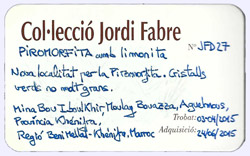 Col·lecció Jordi Fabre
PIROMORFITA amb limonita
Nº JFD27
Nova localitat per la Piromorfita. Cristalls
verds no molt grans.
Mina Bou Iboul Khir, Moulay Bouazza, Aguelmous,
Província Khénifra,
Trobat: 03-04/2015
Regió Beni Mellal-Khénifra, Marroc
Adquisició: 24/06/2015